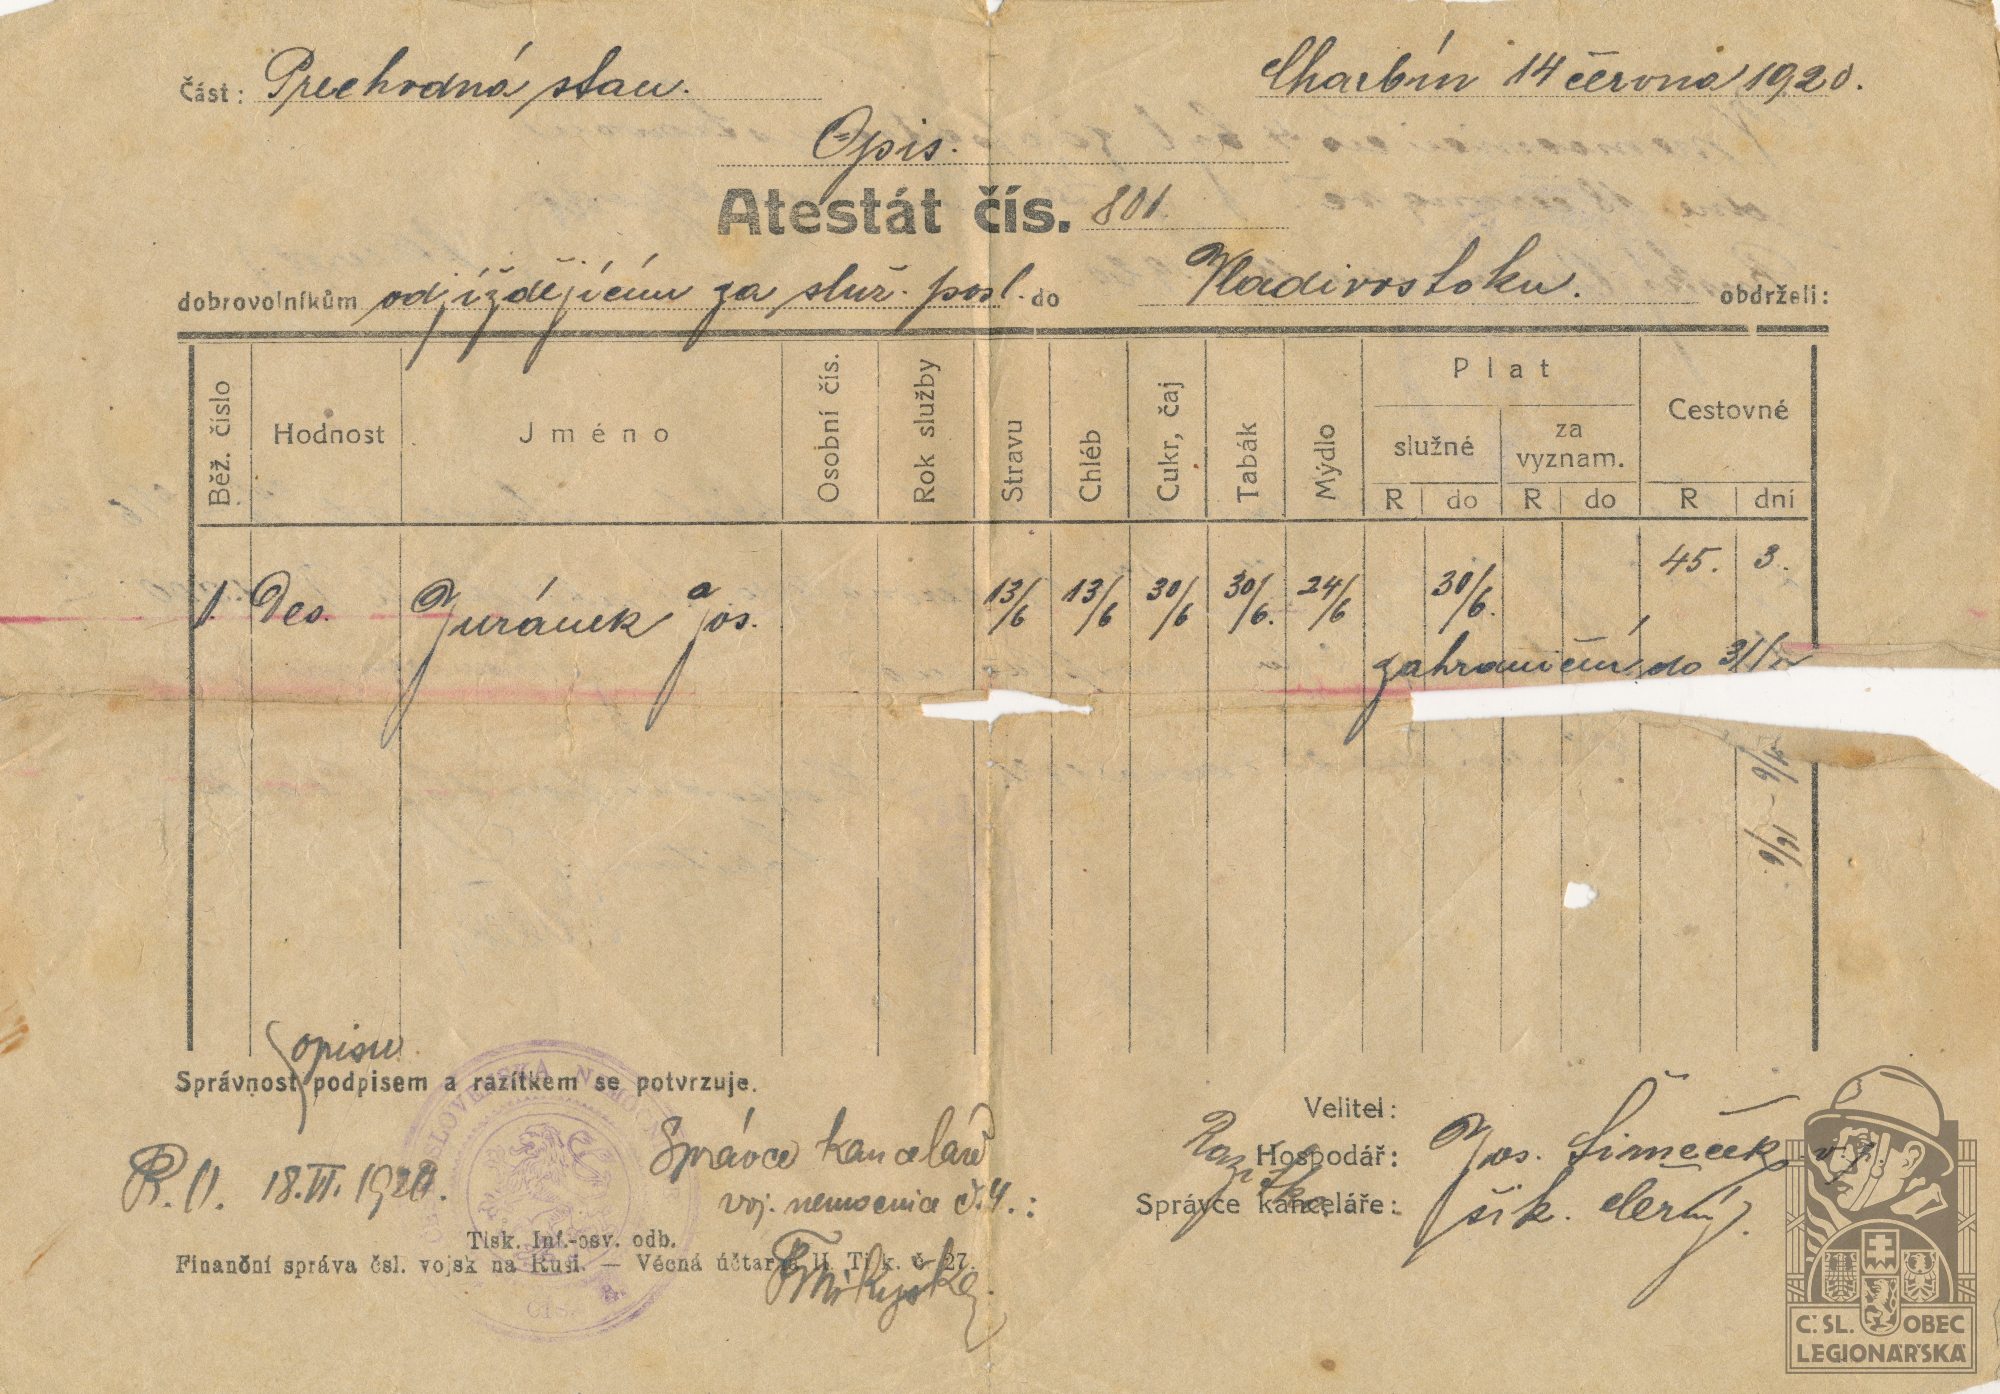 Část: Prechodná stan. Charbín 14 června 1920.
Opis.
Atestát čís. 801.
dobrovolníkům odjíždějícím za služ. posl. do Vladivostoku. obdrželi:
Běž. číslo Hodnost Jméno Osobní čís. Rok služby Stravu Chléb Cukr, čaj Tabák Mýdlo Plat Cestovné
služné za vyznam.
R do R do R dní
1. Des. Juránek Jos. 13/6 13/6 30/6 30/6. 24/6 30/6. 45. 3.
zahraniční do
opisu
Správnost podpisem a razítkem se potvrzuje.
Velitel:
Správce kanceláře
Hospodář: Jos. Šimeček
18.VI.1920.
voj. nemocnice č.4.:
Správce kanceláře: šik. Černý.
Tisk. Inf.-osv. odb.
Finanční správa čsl. vojsk na Rusi. — Věcná účtarna II. Tisk. č. 27.
Č. SL. OBEC
LEGIONÁŘSKÁ